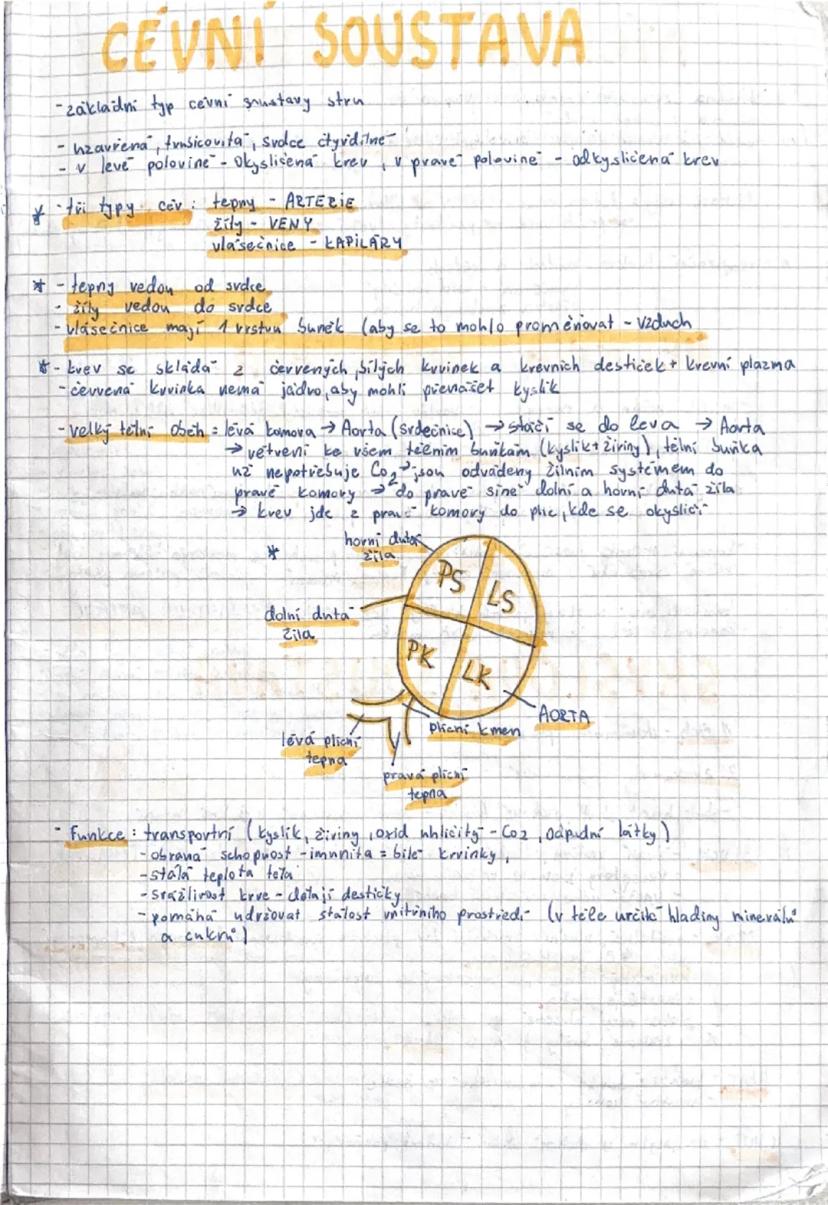 CÉVNÍ SOUSTAVA
- základní typ cévní soustavy
- uzavřená, trubicovitá, srdce čtyřdílné
- v levé polovině - okysličená krev, v pravé polovině - odkysličená krev
* - tři typy cév: tepny - ARTERIE
žíly - VENY
vlásečnice - KAPILÁRY
* - tepny vedou od srdce
- žíly vedou do srdce
- vlásečnice mají 1 vrstvu buněk (aby se to mohlo proměňovat - vzduch
* - krev se skládá z červených, bílých krvinek a krevních destiček + krevní plazma
- červená krvinka nemá jádro, aby mohli přenášet kyslík
- velký tělní oběh = levá komora → Aorta (srdečnice) → stáčí se do leva → Aorta
→ větvení ke všem tělním buňkám (kyslík + živiny), tělní buňka
už nepotřebuje CO2 → jsou odváděny žilním systémem do
pravé komory → do pravé síně dolní a horní dutá žíla
→ krev jde z pravé komory do plic, kde se okysličí
*
horní dutá
žíla
PS
LS
dolní dutá
žíla
PK
LK
AORTA
plicní kmen
levá plicní
tepna
pravá plicní
tepna
- Funkce: transportní (kyslík, živiny, oxid uhličitý - CO2, odpadní látky)
- obraná schopnost - imunita = bílé krvinky,
- stálá teplota těla
- srážlivost krve - dělají destičky
- pomáhá udržovat stálost vnitřního prostředí (v těle určité hladiny minerálů
a cukrů)